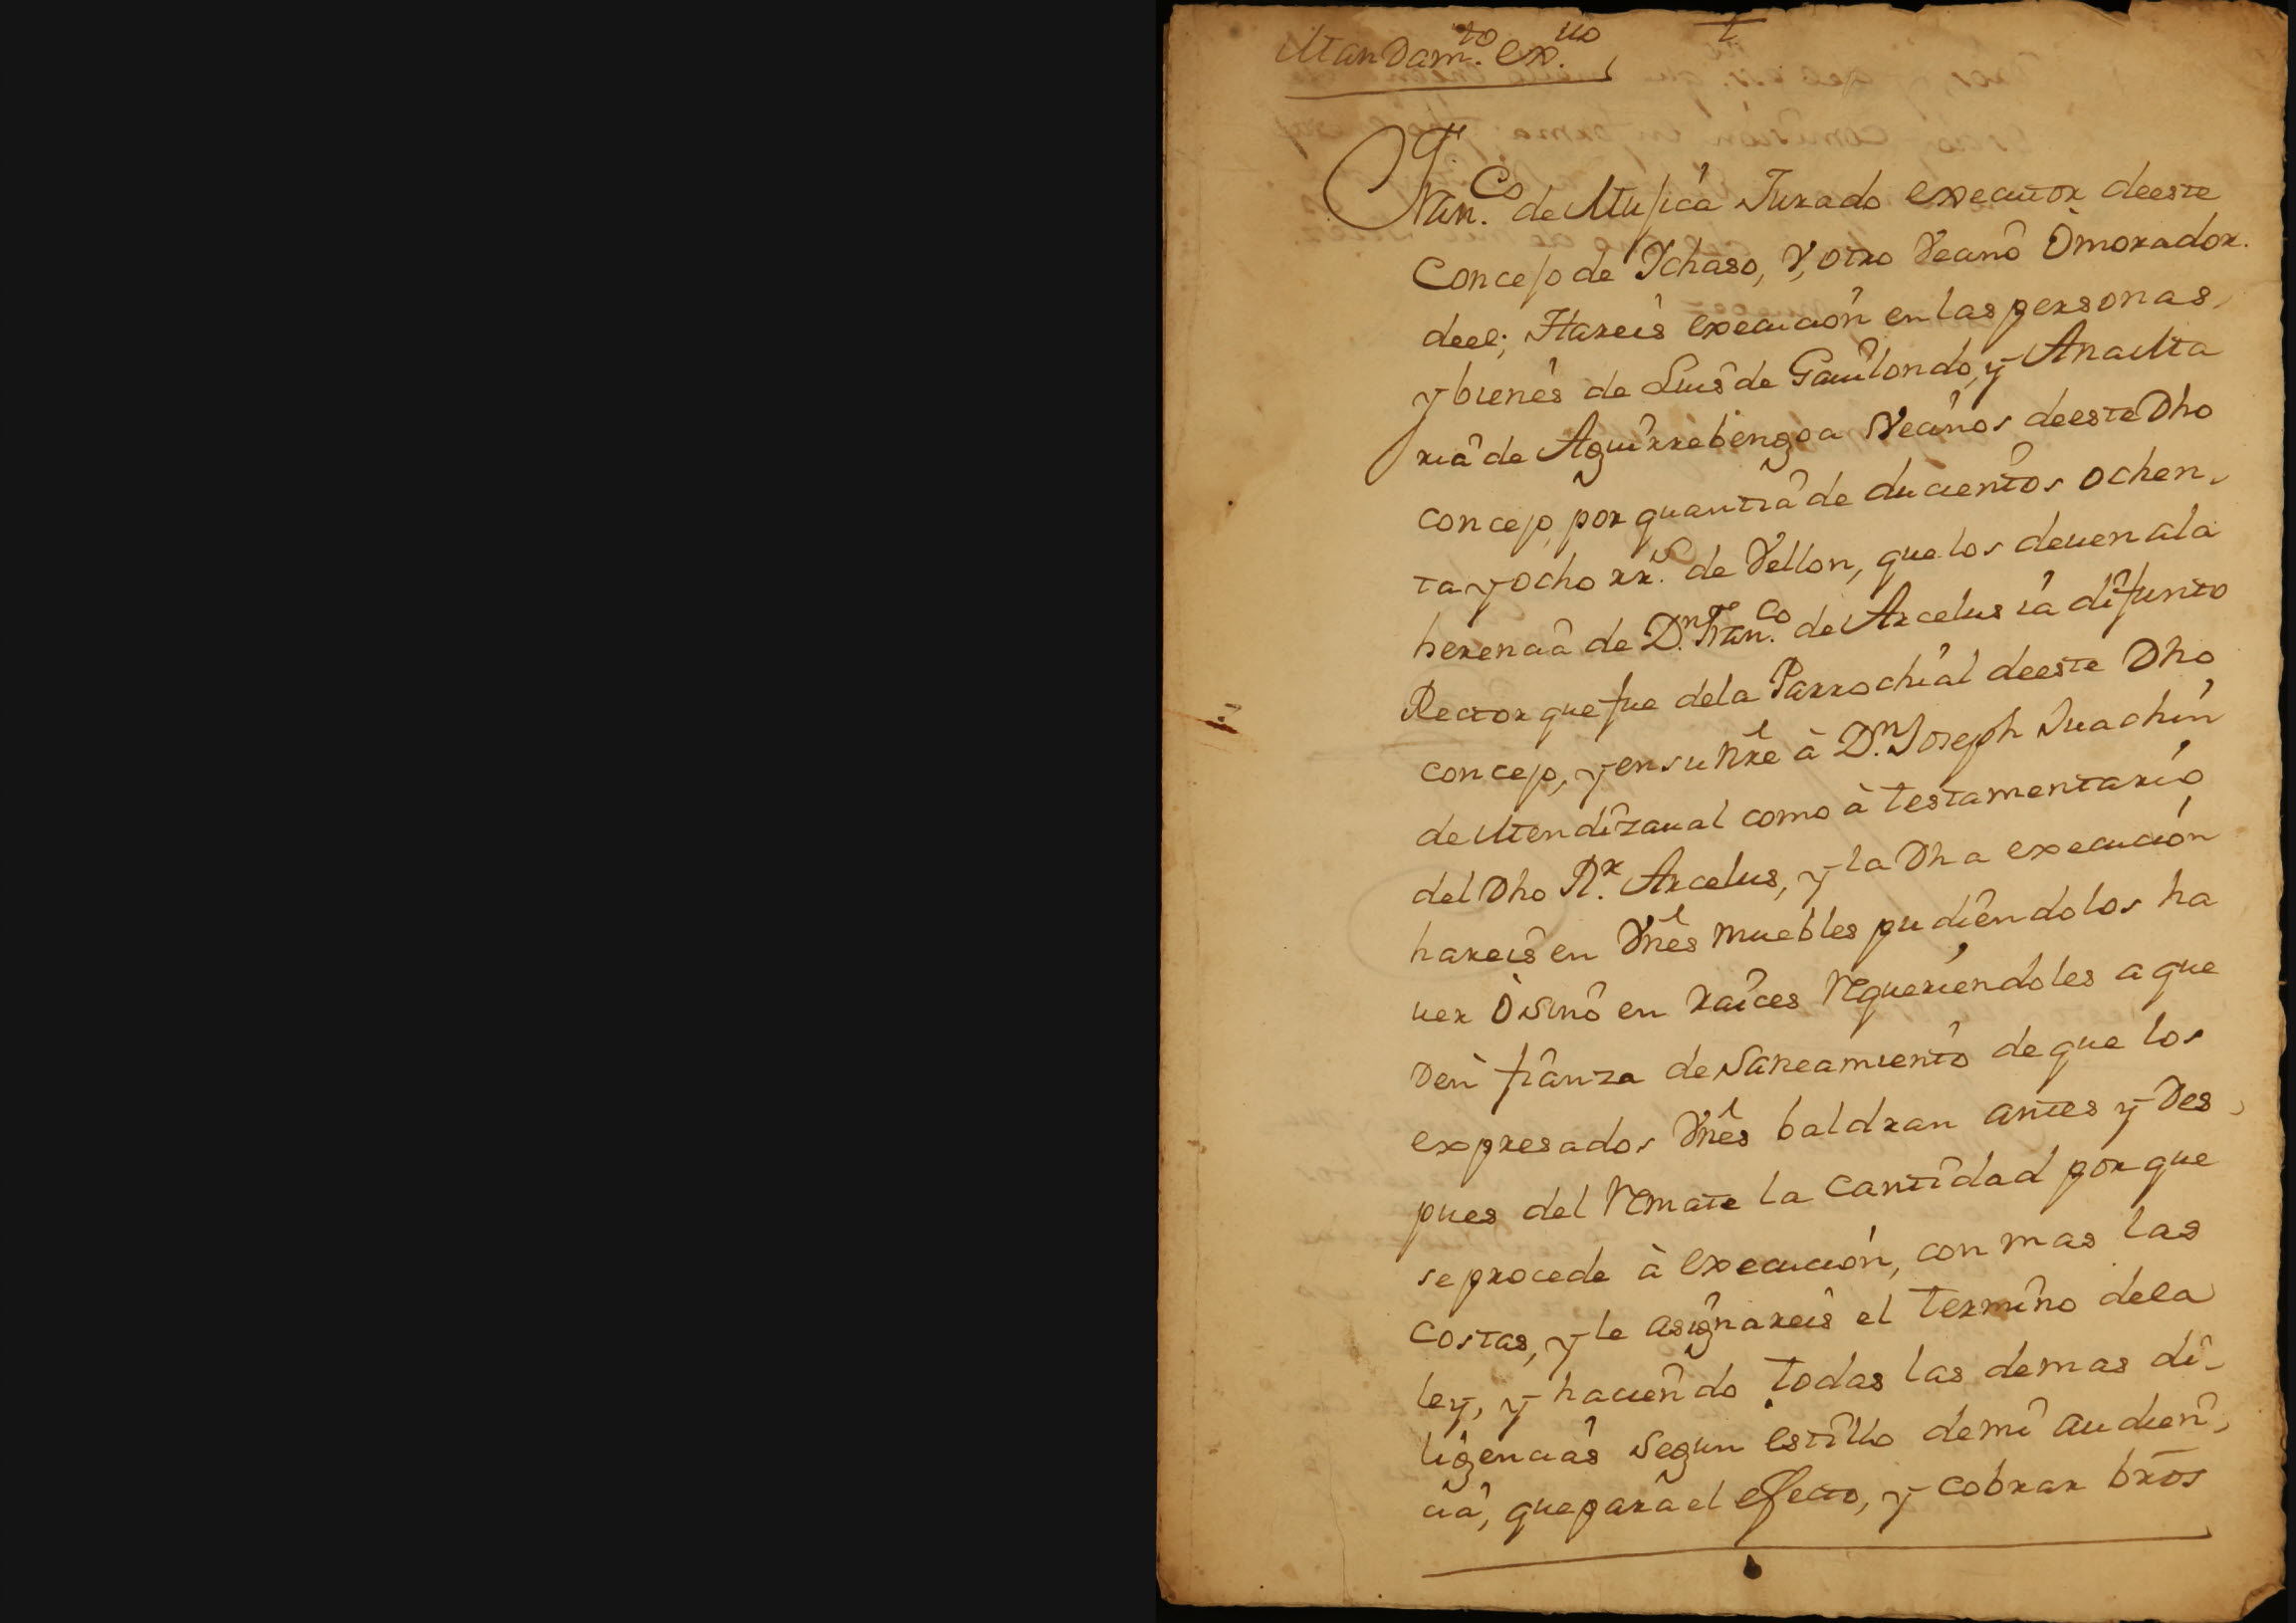 †
Mandam.to ex.uo
Fran.co de Mujica Jurado executor deeste
Concejo de Ychaso, V, otro Vecino ò morador.
deel; Hareis execucion en las personas,
y bienes de Luis de Gauilondo, y Ana Ma
ria de Aguirrebengoa Vecinos deeste Dho
concejo, por quantia de ducientos ochen,
ta y ocho rr.s de Vellon, que los deuen ala
herencia de D.n Fran.co de Arcelus ia difunto
Rector que fue dela Parrochial deeste Dho
concejo, y en su nre à D.n Joseph Juachin
de Mendizaual como à testamentario
del Dho R.r Arcelus, y la Dha execucion
hareis en Vnes muebles pudiendolos ha
uer ò sino en raices requeriendoles a que
Den fianza de Saneamiento de que los
expresados Vnes baldran antes y Des,
pues del remate la cantidad por que
se procede à execucion, con mas las
costas, y le asignareis el termino dela
ley, y haciendo todas las demas di-
ligencias segun estillo de mi audien,
cia, que para el efecto, y cobrar bros